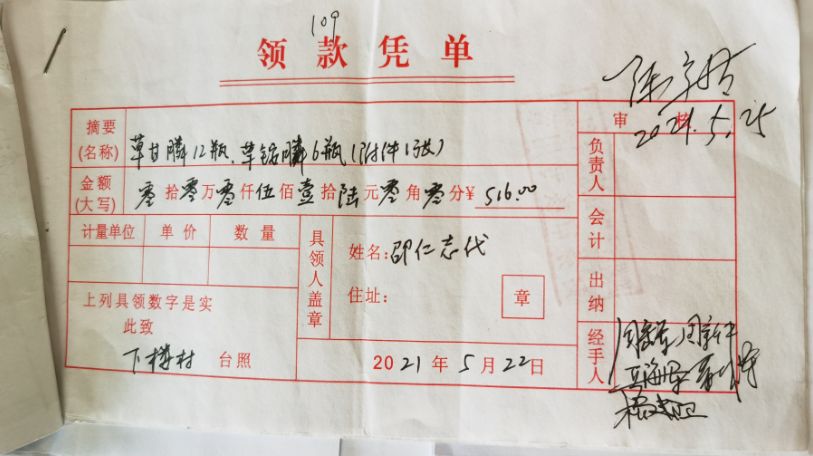 109
领款凭单
2021.5.25
摘要(名称) 草甘膦12瓶,草铵膦6瓶(附件1张)
审核
金额(大写) 零拾零万零仟伍佰壹拾陆元零角零分¥ 516.00
负责人
计量单位 单价 数量
具领人盖章
姓名:邵仁志代
会计
住址:
章
出纳
上列具领数字是实
此致
下樟村 台照
2021年5月22日
经手人